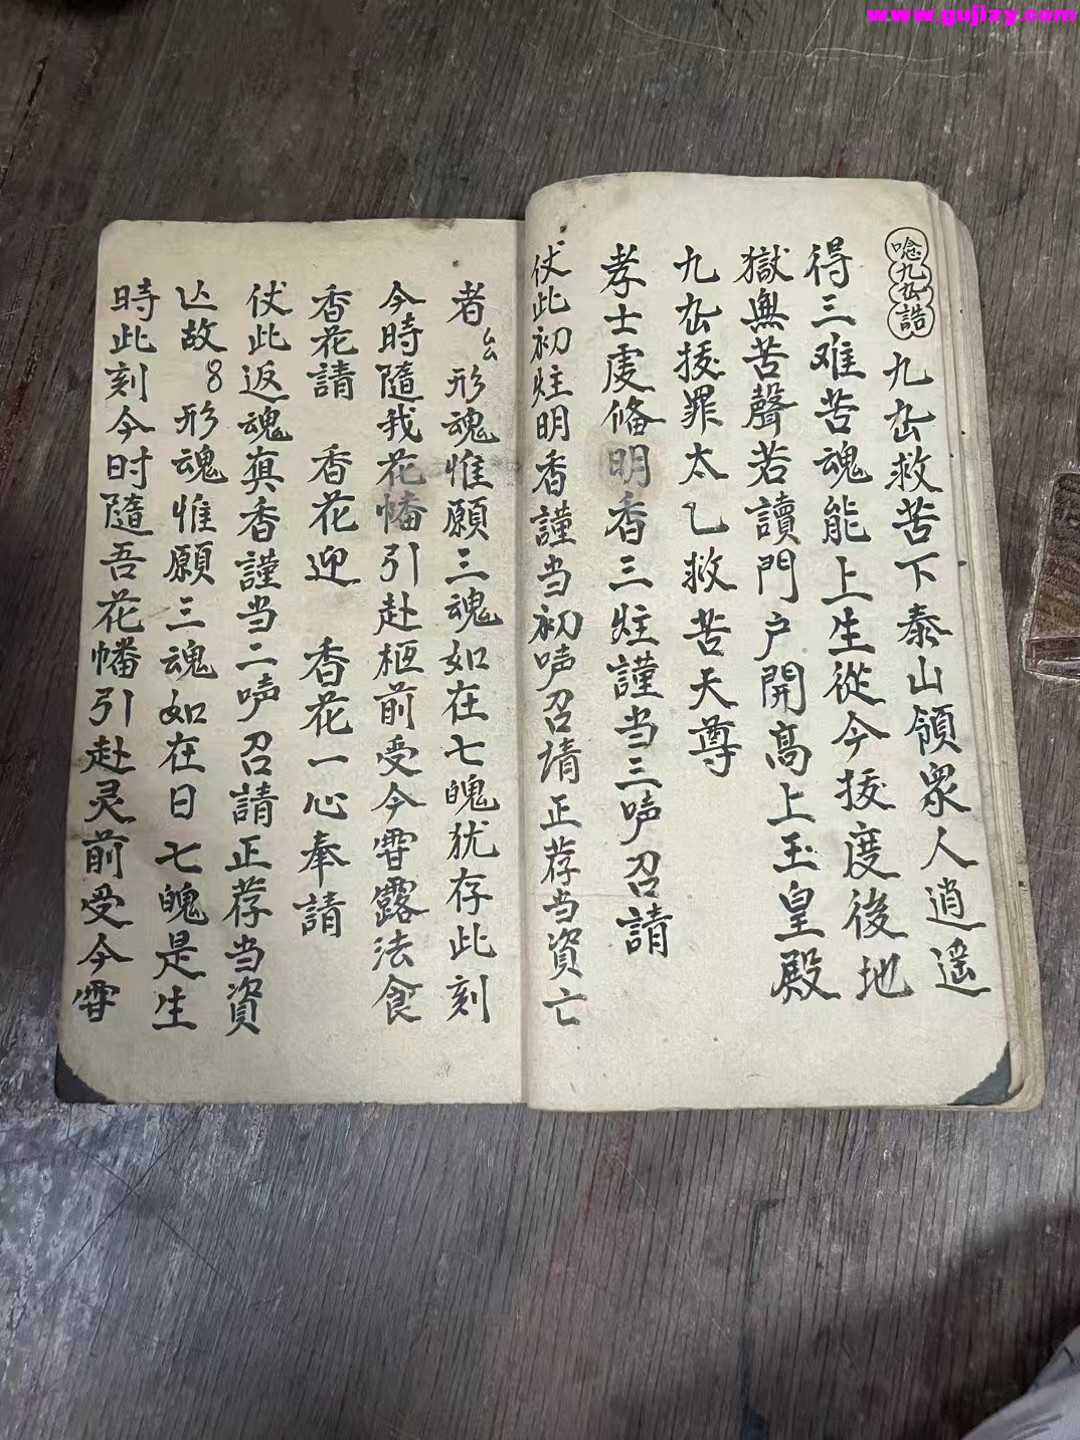 www.gujizy.com
唸九㕕誥 九㕕救苦下泰山領衆人逍遥
得三难苦魂能上生從今援度後地
獄無苦聲若讀門户開高上玉皇殿
九㕕援罪太乙救苦天尊
孝士虔修明香三炷謹当三声召請
仗此初炷明香謹当初声召請正荐当資亡
者 形魂惟願三魂如在七魄犹存此刻
今時隨我花幡引赴柩前受今霄露法食
香花請 香花迎 香花一心奉請
仗此返魂真香謹当二声召請正荐当資
亾故 形魂惟願三魂如在日七魄是生
時此刻今时隨吾花幡引赴灵前受今霄